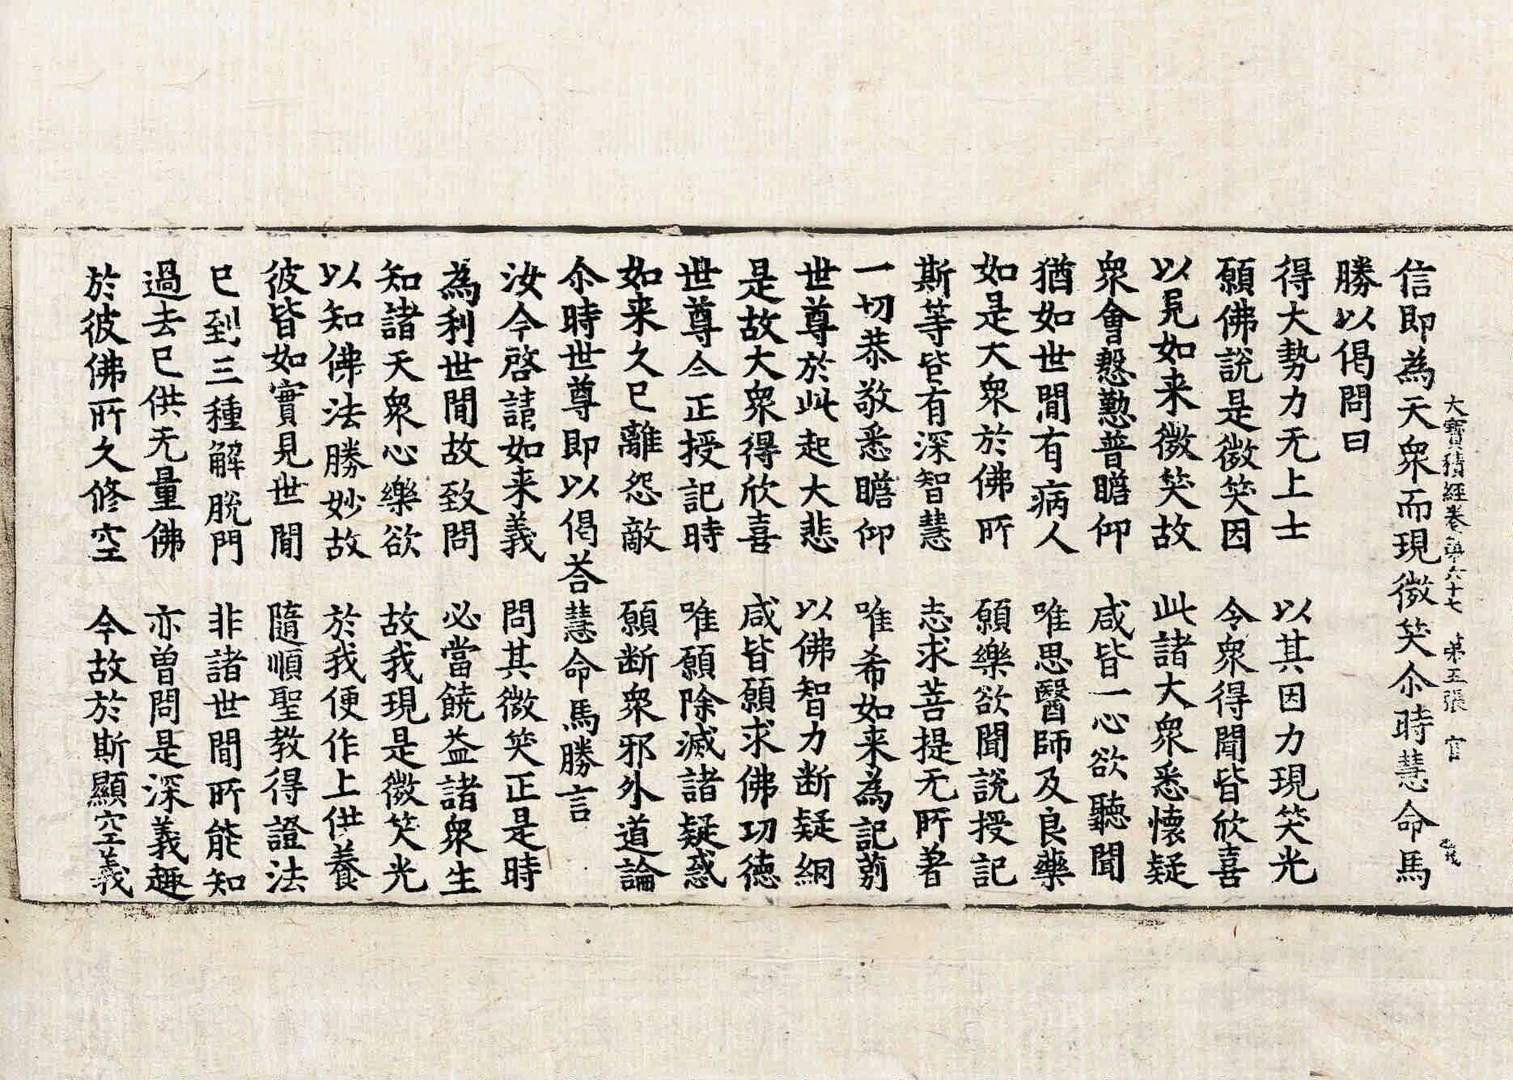 大寶積經卷第六十七 第五張 官
信即為天衆而現微笑尒時慧命馬
勝以偈問曰
得大勢力无上士 以其因力現笑光
願佛說是微笑因 令衆得聞皆欣喜
以見如来微笑故 此諸大衆悉懷疑
衆會慇懃普瞻仰 咸皆一心欲聽聞
猶如世間有病人 唯思醫師及良藥
如是大衆於佛所 願樂欲聞說授記
斯等皆有深智慧 志求菩提无所著
一切恭敬悉瞻仰 唯希如来為記莂
世尊於此起大悲 以佛智力断疑網
是故大衆得欣喜 咸皆願求佛功德
世尊今正授記時 唯願除滅諸疑惑
如来久已離怨敵 願断衆邪外道論
尒時世尊即以偈荅慧命馬勝言
汝今啓請如来義 問其微笑正是時
為利世間故致問 必當饒益諸衆生
知諸天衆心樂欲 故我現是微笑光
以知佛法勝妙故 於我便作上供養
彼皆如實見世間 隨順聖教得證法
已到三種解脫門 非諸世間所能知
過去已供无量佛 亦曾問是深義趣
於彼佛所久修空 今故於斯顯空義